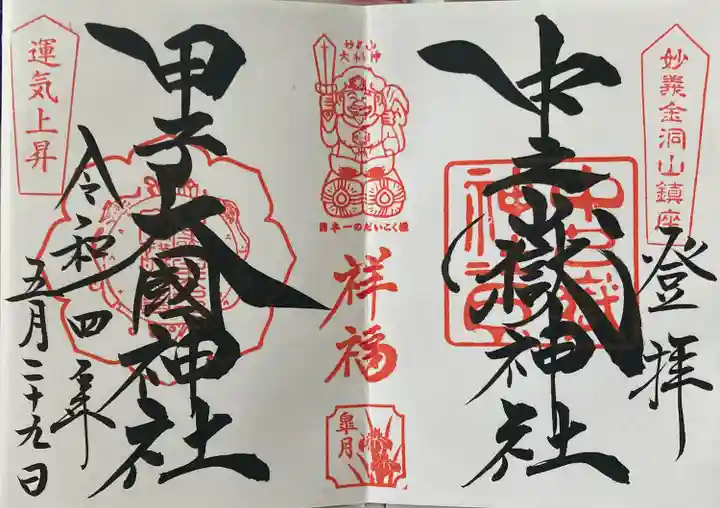 妙義金洞山鎮座
登拝
中之嶽神社
中之嶽
神社
妙義山
大神
日本一のだいこく様
祥福
皐月
甲子大國神社
運気上昇
令和四年
五月二十九日